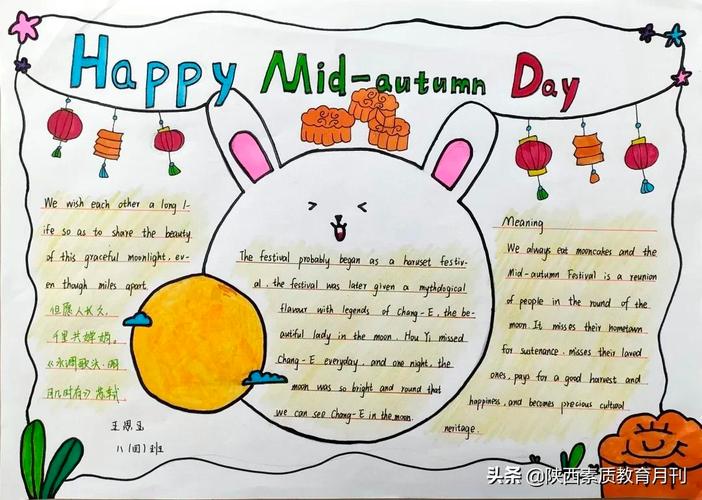 Happy Mid-autumn Day
We wish each other a long l-
ife so as to share the beauty
of this graceful moonlight, ev-
en though miles apart.
但愿人长久,
千里共婵娟。
《水调歌头·明
月几时有》苏轼
八(四)班
The festival probably began as a haruset festiv-
al, the festival was later given a mythological
flavour with legends of Chang-E, the be-
autiful lady in the moon. Hou Yi missed
Chang-E everyday, and one night, the
moon was so bright and round that
we can see Chang-E in the moon.
Meaning
We always eat mooncakes and the
Mid-autumn Festival is a reunion
of people in the round of the
moon. It misses their hometown
for sustenance, misses their loved
ones, pays for a good harvest and
happiness, and becomes precious cultural
neritage.
头条 @陕西素质教育月刊